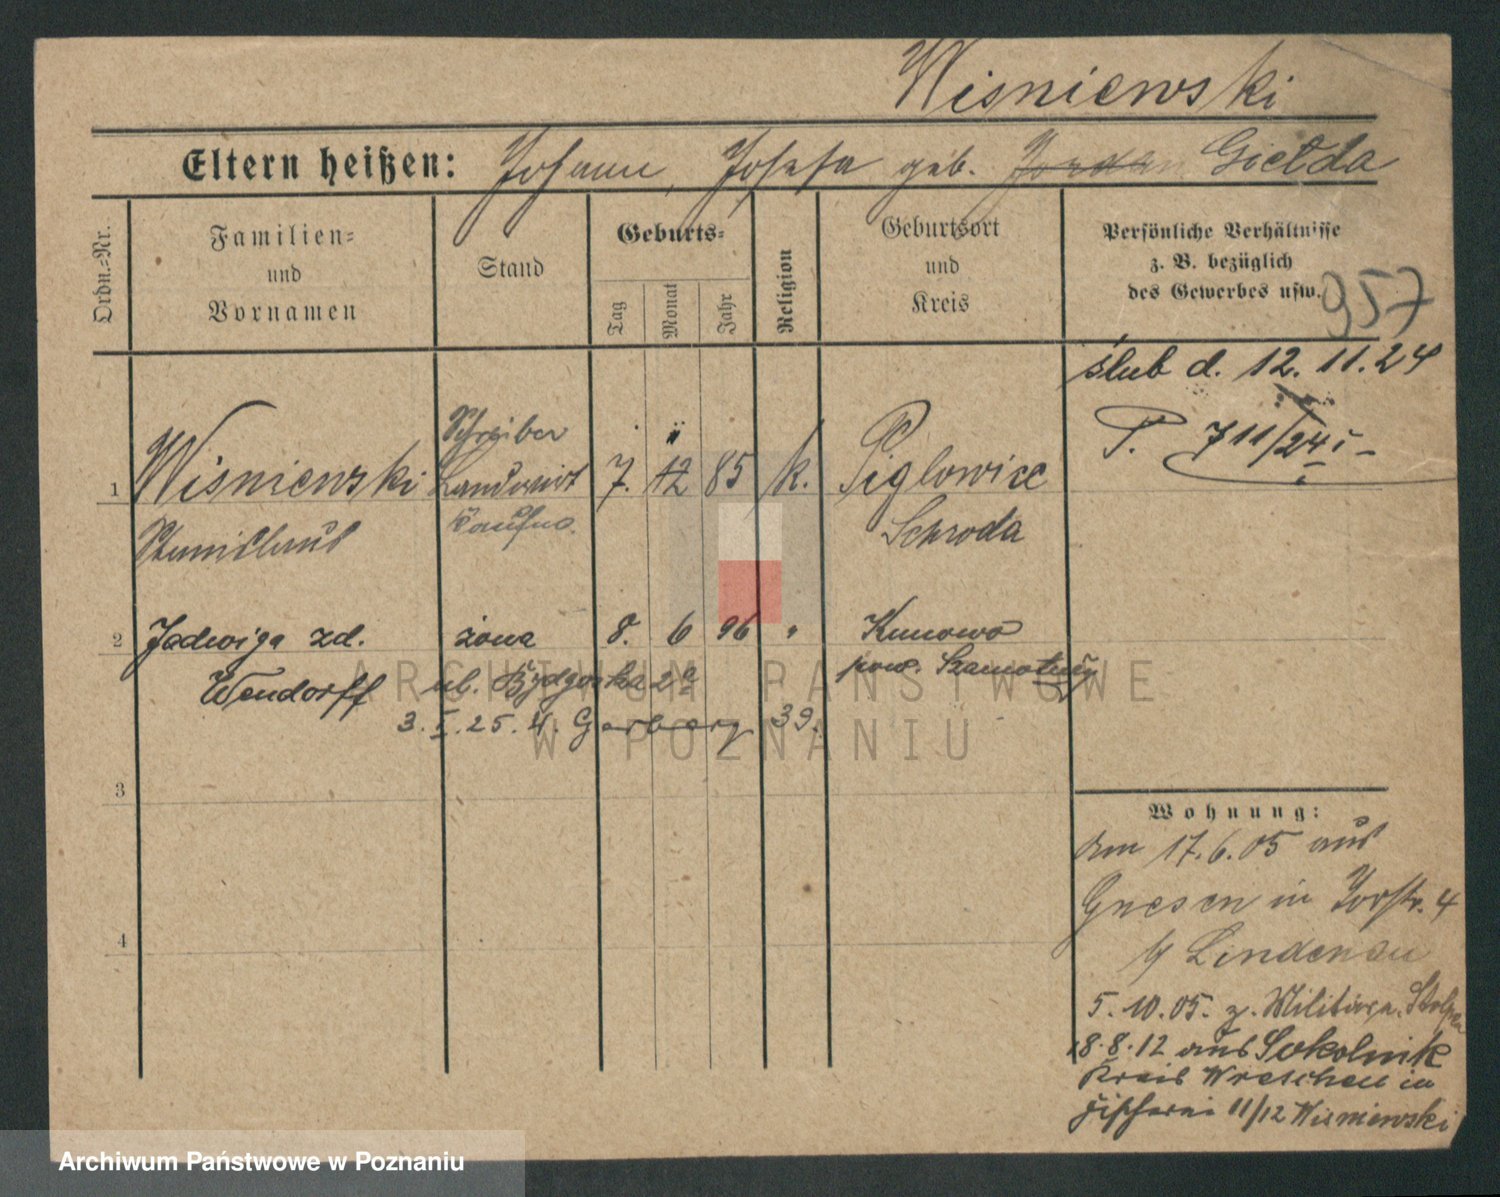 Wisniewski
Eltern heißen: Johann, Josefa geb. Jordan Giełda
Ordn.=Nr.
Familien=
und
Vornamen
Stand
Geburts=
Tag
Monat
Jahr
Religion
Geburtsort
und
Kreis
Persönliche Verhältnisse
z. B. bezüglich
des Gewerbes usw.
957
ślub d. 12. 11. 24
P. 711/24 I
Schreiber
1 Wisniewski Landwirt 7. 12 85 k. Piglowice
Stanislaus Kaufm. Schroda
2 Jadwiga zd. żona 8. 6 96 " Kunowo
Wendorff ul. Bydgoska 2a pow. Szamotuły
3. I. 25. U. Garbary 39.
3
4
Wohnung:
Am 17.6.05 aus
Gnesen in Torstr. 4
b/ Lindenau
5.10.05. z. Militär n. Stolp
18.8.12 aus Sokolnik
Kreis Wreschen in
Fischerei 11/12 Wisniewski
ARCHIWUM PAŃSTWOWE
W POZNANIU
Archiwum Państwowe w Poznaniu